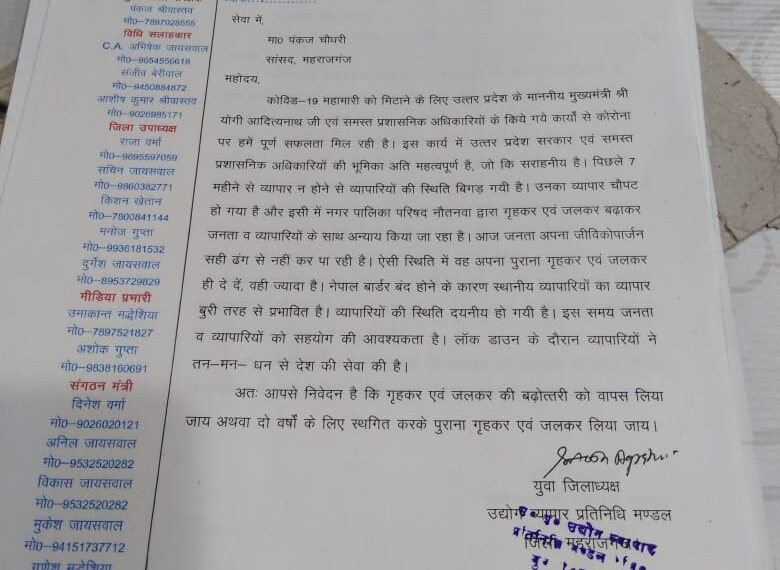 पंकज श्रीवास्तव
मो0–7897028555
विधि सलाहकार
C.A. अभिषेक जायसवाल
मो0–9654556618
संजीव बेरीवाल
मो0–9450884872
आशीष कुमार श्रीवास्तव
मो0–9026985171
जिला उपाध्यक्ष
राजा वर्मा
मो0–9895597059
सचिन जायसवाल
मो0–9860382771
किशन खेतान
मो0–7800841144
मनोज गुप्ता
मो0–9936181532
दुर्गेश जायसवाल
मो0–8953729829
मीडिया प्रभारी
उमाकान्त मद्धेशिया
मो0–7897521827
अशोक गुप्ता
मो0–9838160691
संगठन मंत्री
दिनेश वर्मा
मो0–9026020121
अनिल जायसवाल
मो0–9532520282
विकास जायसवाल
मो0–9532520282
मुकेश जायसवाल
मो0–94151737712
गणेश मद्धेशिया
सेवा में,
मा0 पंकज चौधरी
सांसद, महराजगंज
महोदय,
कोविड–19 महामारी को मिटाने के लिए उत्तर प्रदेश के माननीय मुख्यमंत्री श्री
योगी आदित्यनाथ जी एवं समस्त प्रशासनिक अधिकारियों के किये गये कार्यो से कोरोना
पर हमें पूर्ण सफलता मिल रही है। इस कार्य में उत्तर प्रदेश सरकार एवं समस्त
प्रशासनिक अधिकारियों की भूमिका अति महत्वपूर्ण है, जो कि सराहनीय है। पिछले 7
महीने से व्यापार न होने से व्यापारियों की स्थिति बिगड़ गयी है। उनका व्यापार चौपट
हो गया है और इसी में नगर पालिका परिषद नौतनवा द्वारा गृहकर एवं जलकर बढ़ाकर
जनता व व्यापारियों के साथ अन्याय किया जा रहा है। आज जनता अपना जीविकोपार्जन
सही ढंग से नहीं कर पा रही है। ऐसी स्थिति में वह अपना पुराना गृहकर एवं जलकर
ही दे दें, वही ज्यादा है। नेपाल बार्डर बंद होने के कारण स्थानीय व्यापारियों का व्यापार
बुरी तरह से प्रभावित है। व्यापारियों की स्थिति दयनीय हो गयी है। इस समय जनता
व व्यापारियों को सहयोग की आवश्यकता है। लॉक डाउन के दौरान व्यापारियों ने
तन–मन– धन से देश की सेवा की है।
अतः आपसे निवेदन है कि गृहकर एवं जलकर की बढ़ोत्तरी को वापस लिया
जाय अथवा दो वर्षों के लिए स्थगित करके पुराना गृहकर एवं जलकर लिया जाय।
युवा जिलाध्यक्ष
उद्योग व्यापार प्रतिनिधि मण्डल
जिला महराजगंज